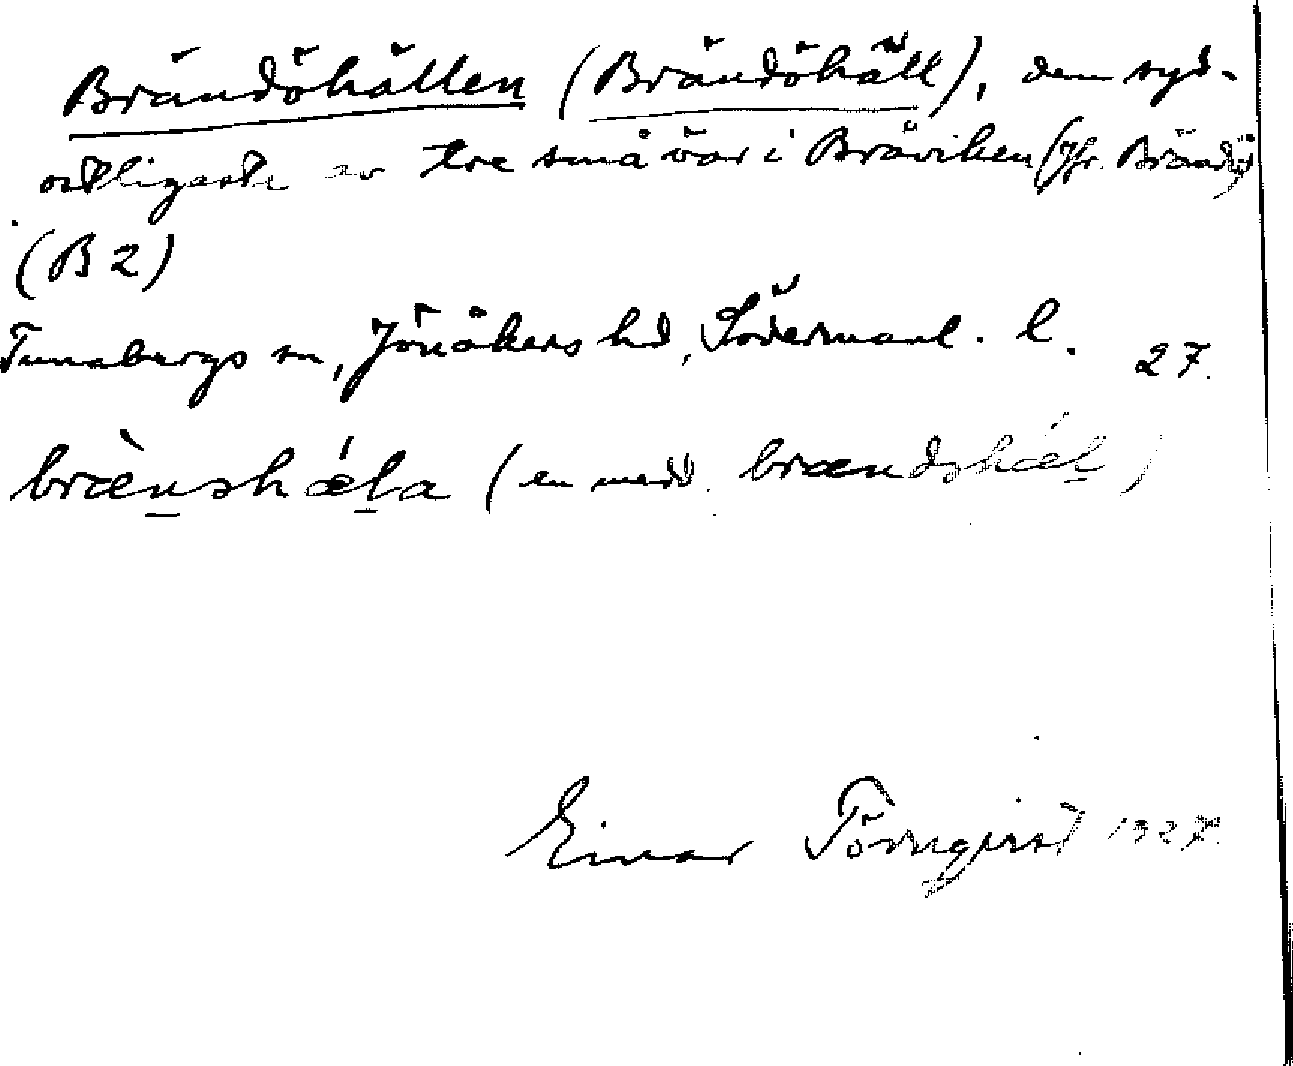 Brändöhällen (Brändöhäll), den syd-
ostligaste av tre små öar i Bråviken (Jfr. Brändö)
(B 2)
Tunabergs sn, Jönåkers hd, Söderманl. l. 27.
brænshæla (en medd. brændshæl)
Einar Törnqvist 1927.